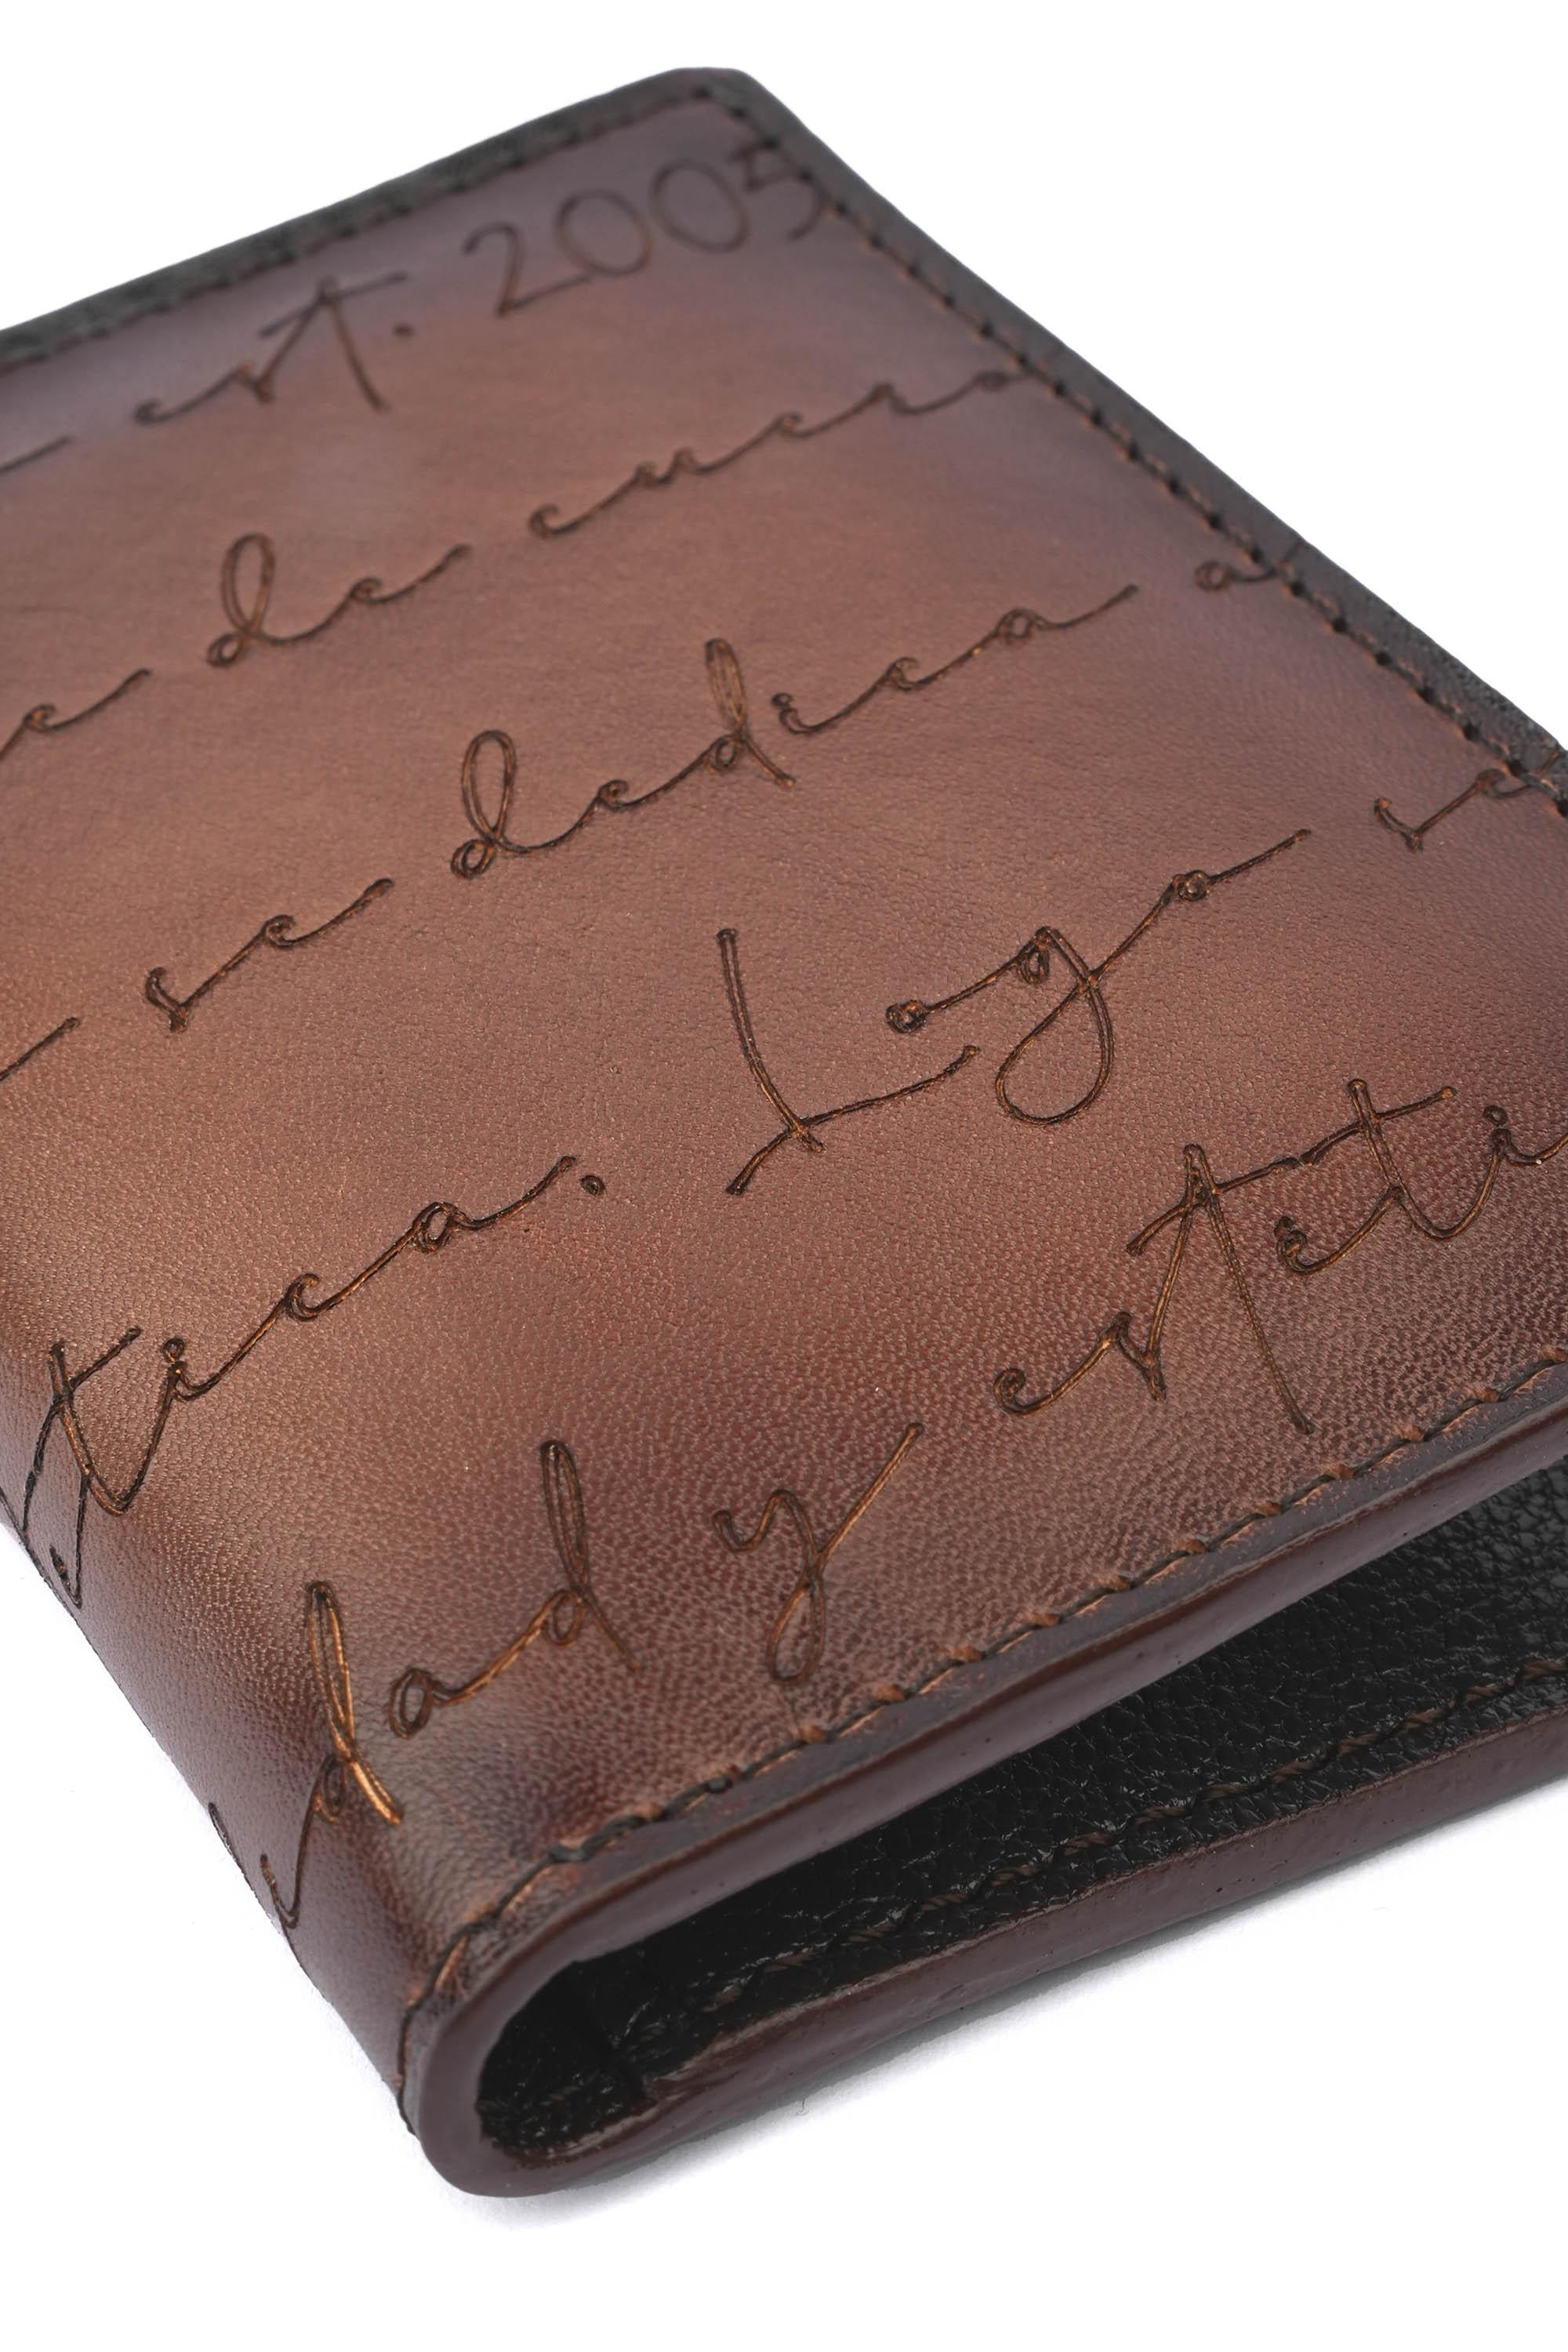 est. 2005
de cuero
se dedica a
tica. Logo
dad y esteti